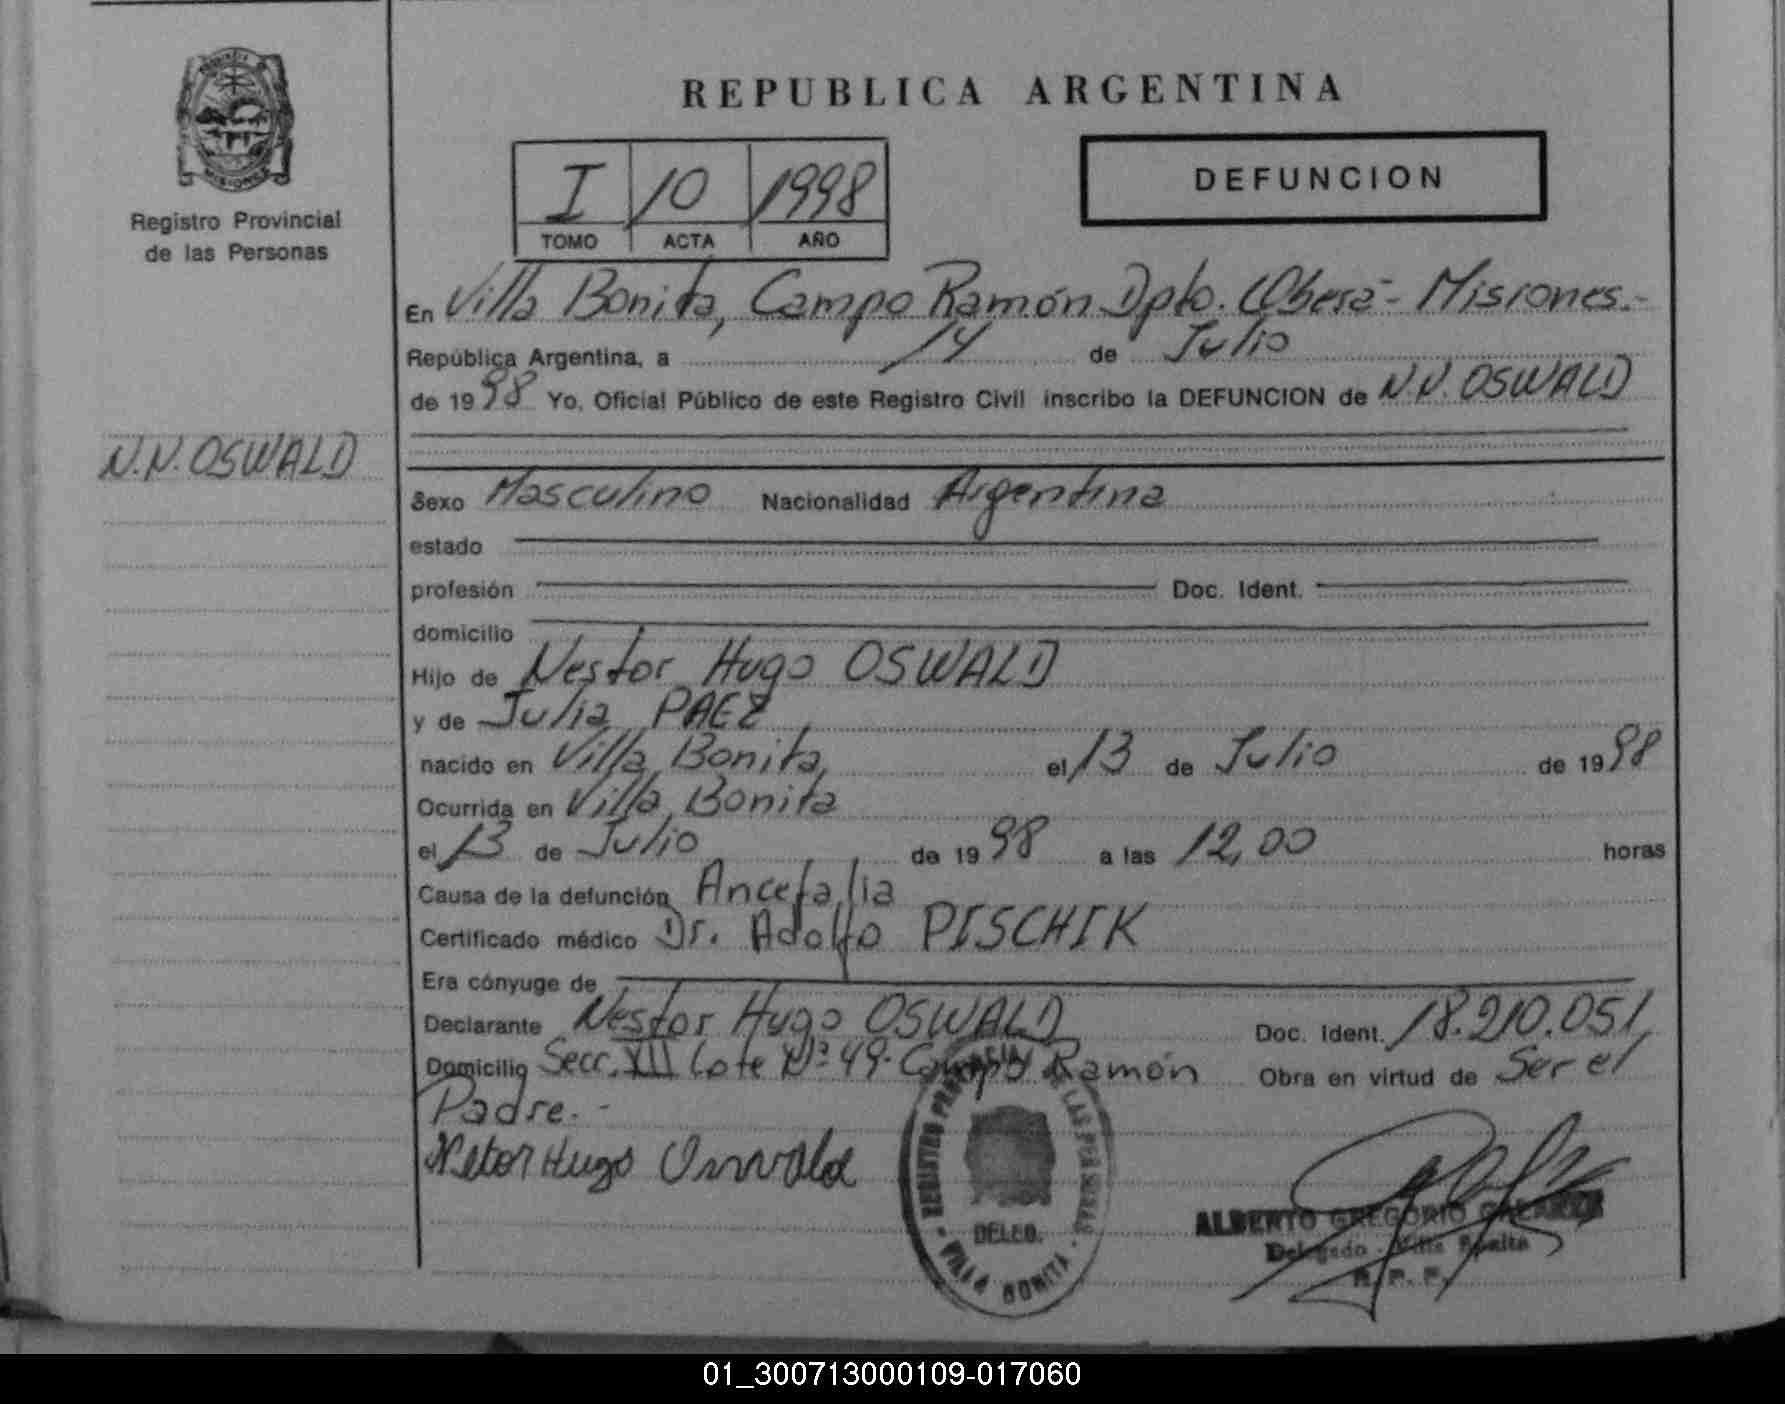 REPUBLICA ARGENTINA
PROVINCIA DE
MISIONES
Registro Provincial
de las Personas
I 10 1998
TOMO ACTA AÑO
DEFUNCION
En Villa Bonita, Campo Ramón Dpto. Oberá - Misiones.-
República Argentina, a 14 de Julio
de 1998 Yo, Oficial Público de este Registro Civil inscribo la DEFUNCION de N.N. OSWALD
N.N. OSWALD
Sexo Masculino Nacionalidad Argentina
estado
profesión Doc. Ident.
domicilio
Hijo de Nestor Hugo OSWALD
y de Julia PAEZ
nacido en Villa Bonita, el 13 de Julio de 1998
Ocurrida en Villa Bonita
el 13 de Julio de 1998 a las 12,00 horas
Causa de la defunción Ancefalia
Certificado médico Dr. Adolfo PISCHIK
Era cónyuge de
Declarante Nestor Hugo OSWALD Doc. Ident. 18.210.051,
Domicilio Secc. XII Lote Nº 49- Campo Ramón Obra en virtud de Ser el
Padre.-
Nestor Hugo Oswald
REGISTRO PROVINCIAL DE LAS PERSONAS
DELEG.
- VILLA BONITA -
ALBERTO GREGORIO
Delegado - Villa Bonita
R. P. P.
01_300713000109-017060